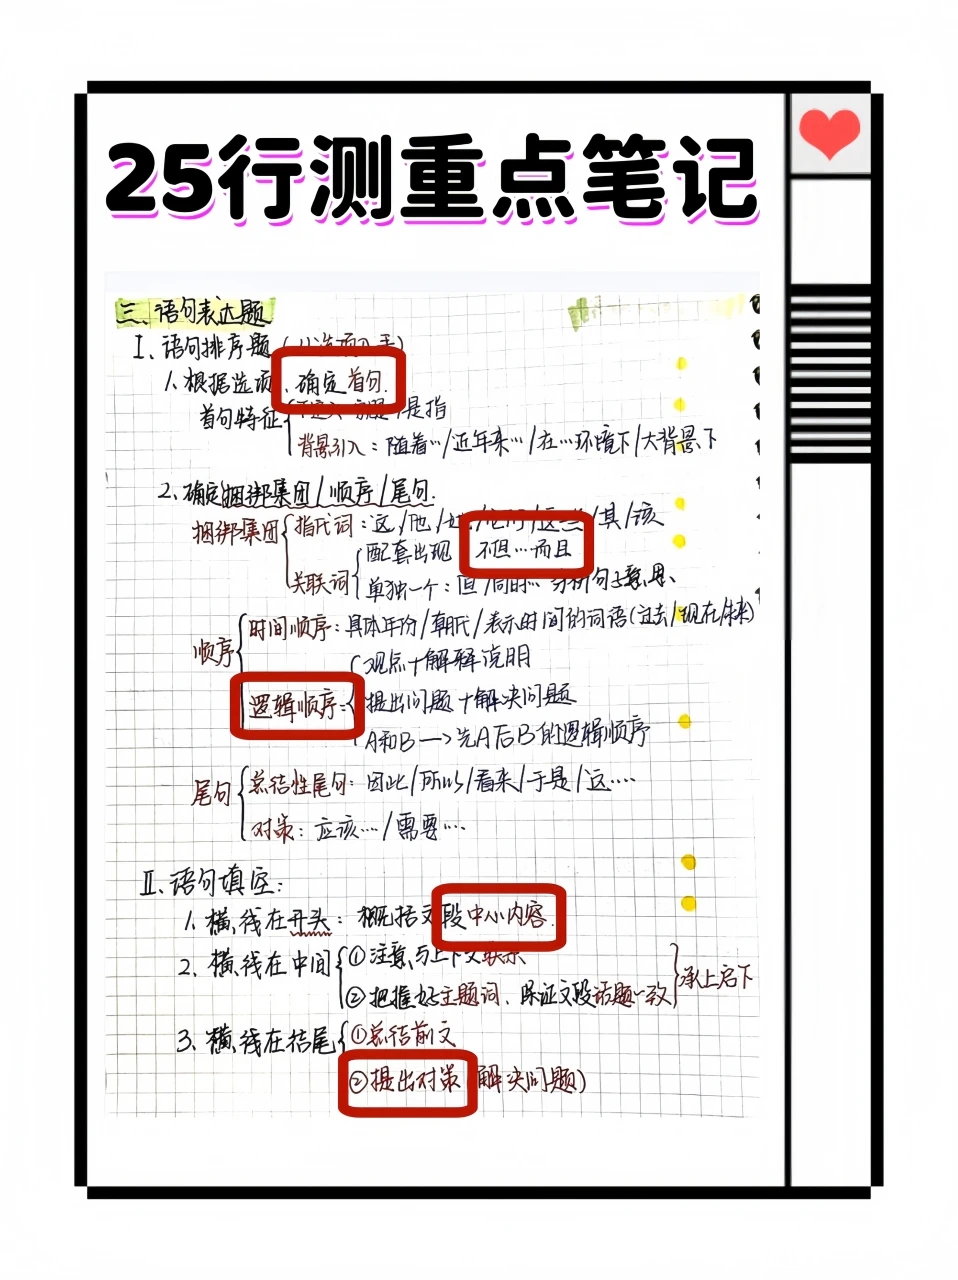 25行测重点笔记
三、语句表达题
Ⅰ、语句排序题
1、根据选项、确定首句.
首句特征 是指
背景引入：随着…/近年来…/在…环境下/大背景下
2、确定捆绑集团/顺序/尾句.
捆绑集团 指代词：这/他/她/它们/这些/其/该
配套出现 不但…而且
关联词
单独一个：但/同时…分析句子意思、
时间顺序：具体年份/朝代/表示时间的词语(过去/现在/未来)
顺序
观点+解释说明
逻辑顺序： 提出问题+解决问题
A和B—>先A后B的逻辑顺序
尾句 总结性尾句：因此/所以/看来/于是/这….
对策：应该…/需要…
Ⅱ、语句填空：
1、横线在开头：概括文段中心内容.
2、横线在中间 ①注意与上下文联系
②把握好主题词、保证文段话题一致 承上启下
3、横线在结尾 ①总结前文
②提出对策(解决问题)